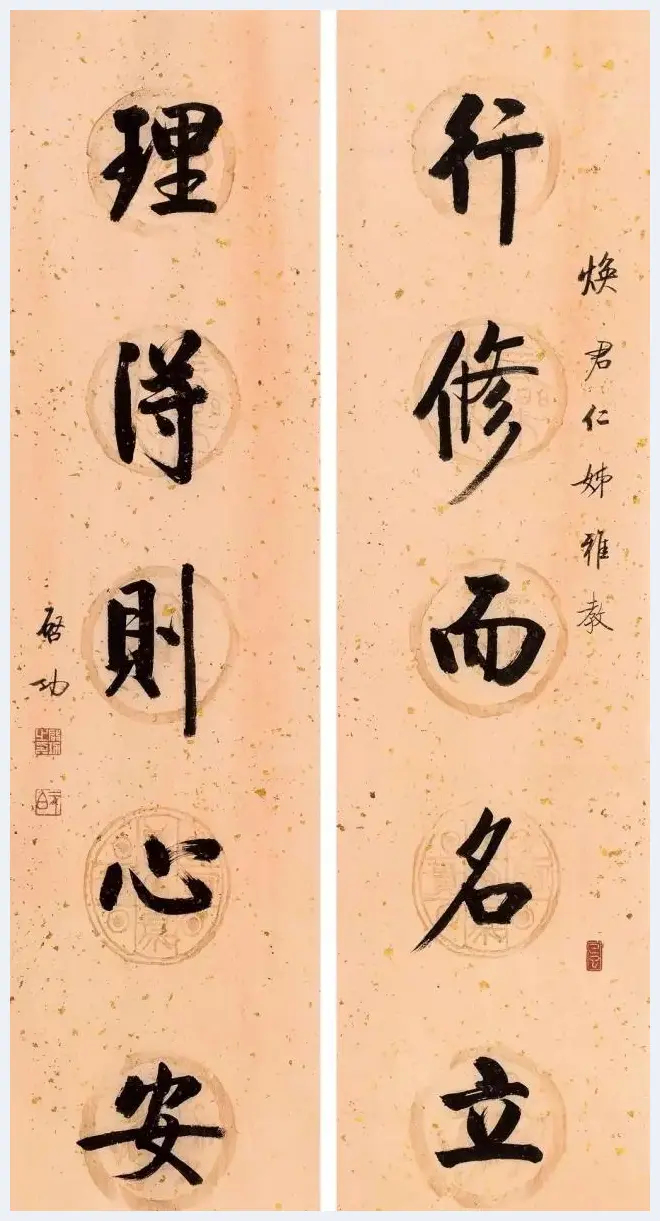 焕君仁姊雅教
行修而名立
理得則心安
啓功